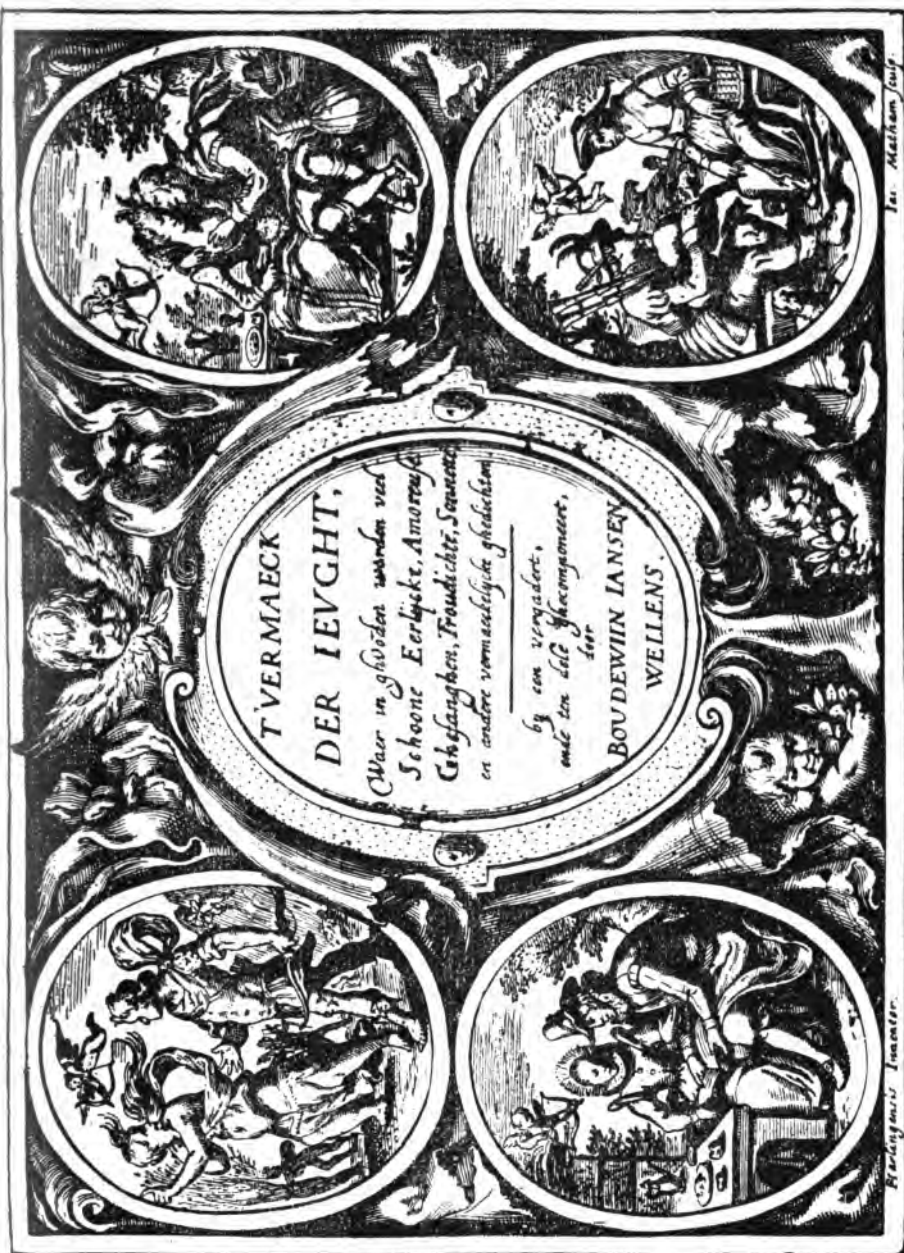 T'VERMAECK
DER IEVGHT,
Waer in ghevoden worden veel
Schoone Eerlijcke, Amoreuse
Ghesanghen, Troudichtē, Sonnettē,
en andere vermaecklijcke ghedichten
by een vergadert,
ende ten deele ghecomponeert,
door
BOVDEWIIN IANSEN
WELLENS.
Harlingensis Inventor.
Iac. Matham sculp.